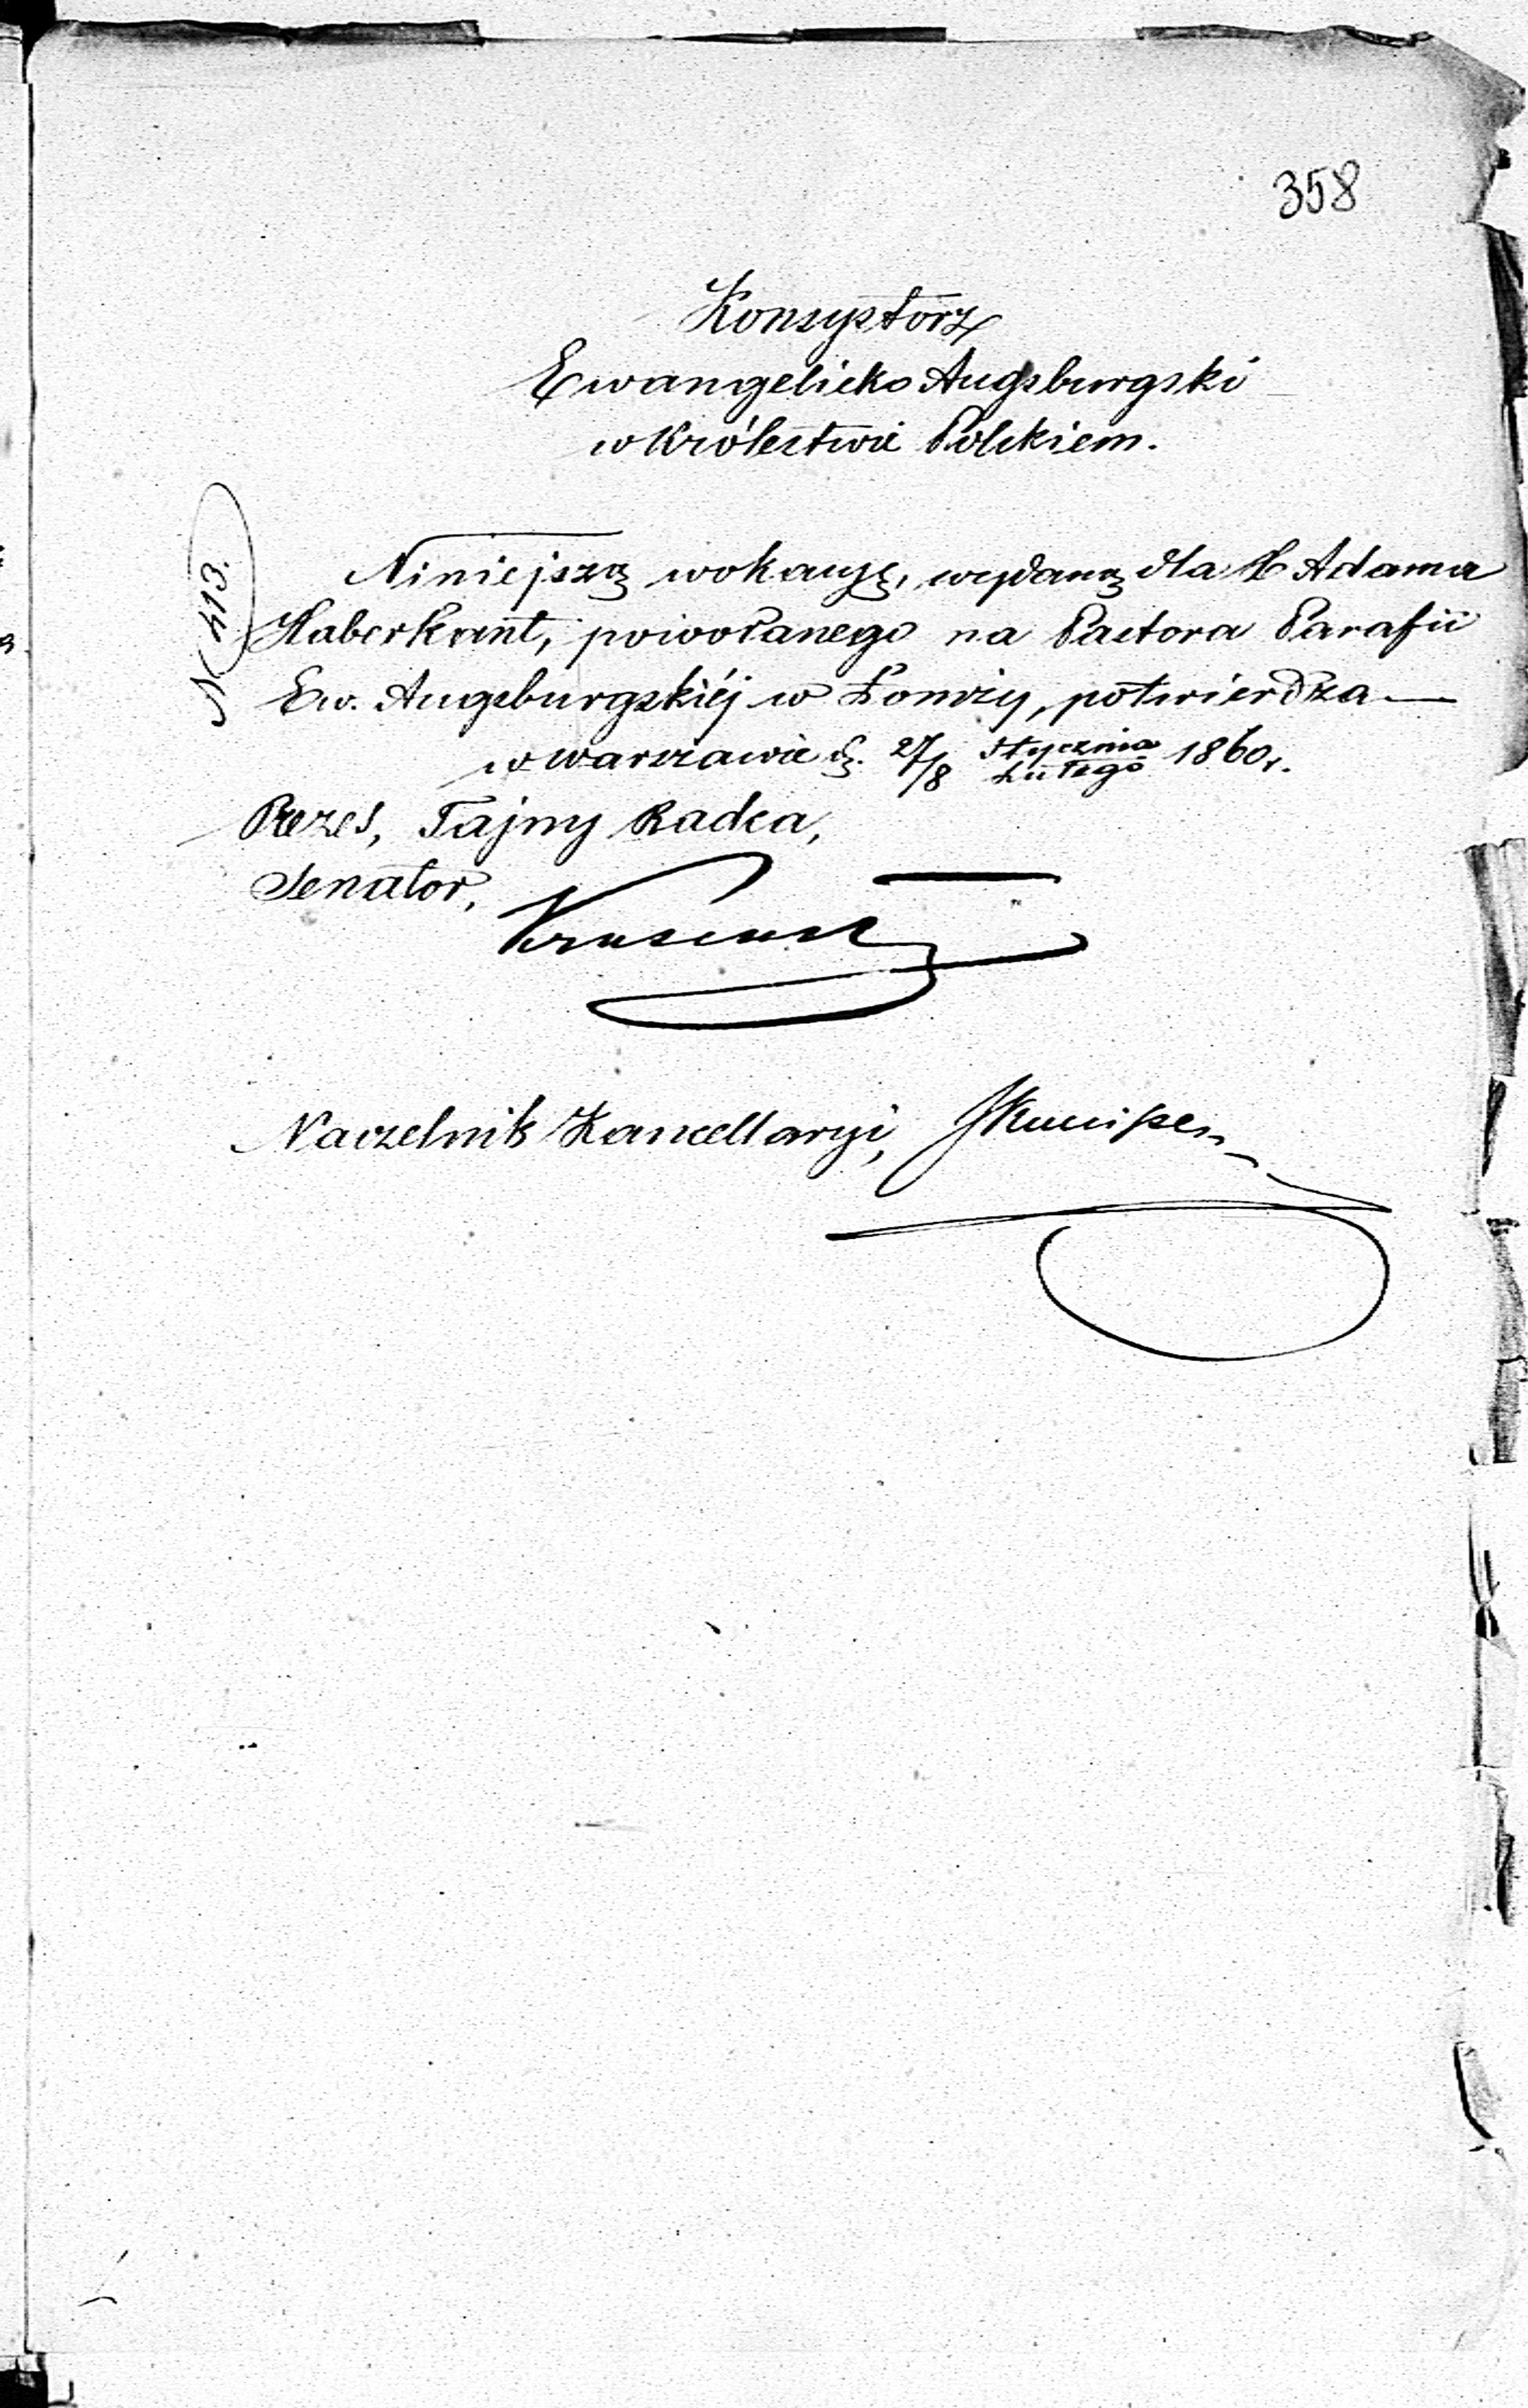 358
Konsystorz
Ewangelicko Augsburgski
w Królestwie Polskiem.
N 413.
Niniejszą wokacyę, wydaną dla X Adama
Haberkant, powołanego na Pastora Parafii
Ew. Augsburgskiéj w Łomży, potwierdza —
w Warszawie d. 27/8 Stycznia/Lutego 1860 r.
Prezes, Tajny Radca,
Senator,
Naczelnik Kancellaryi,